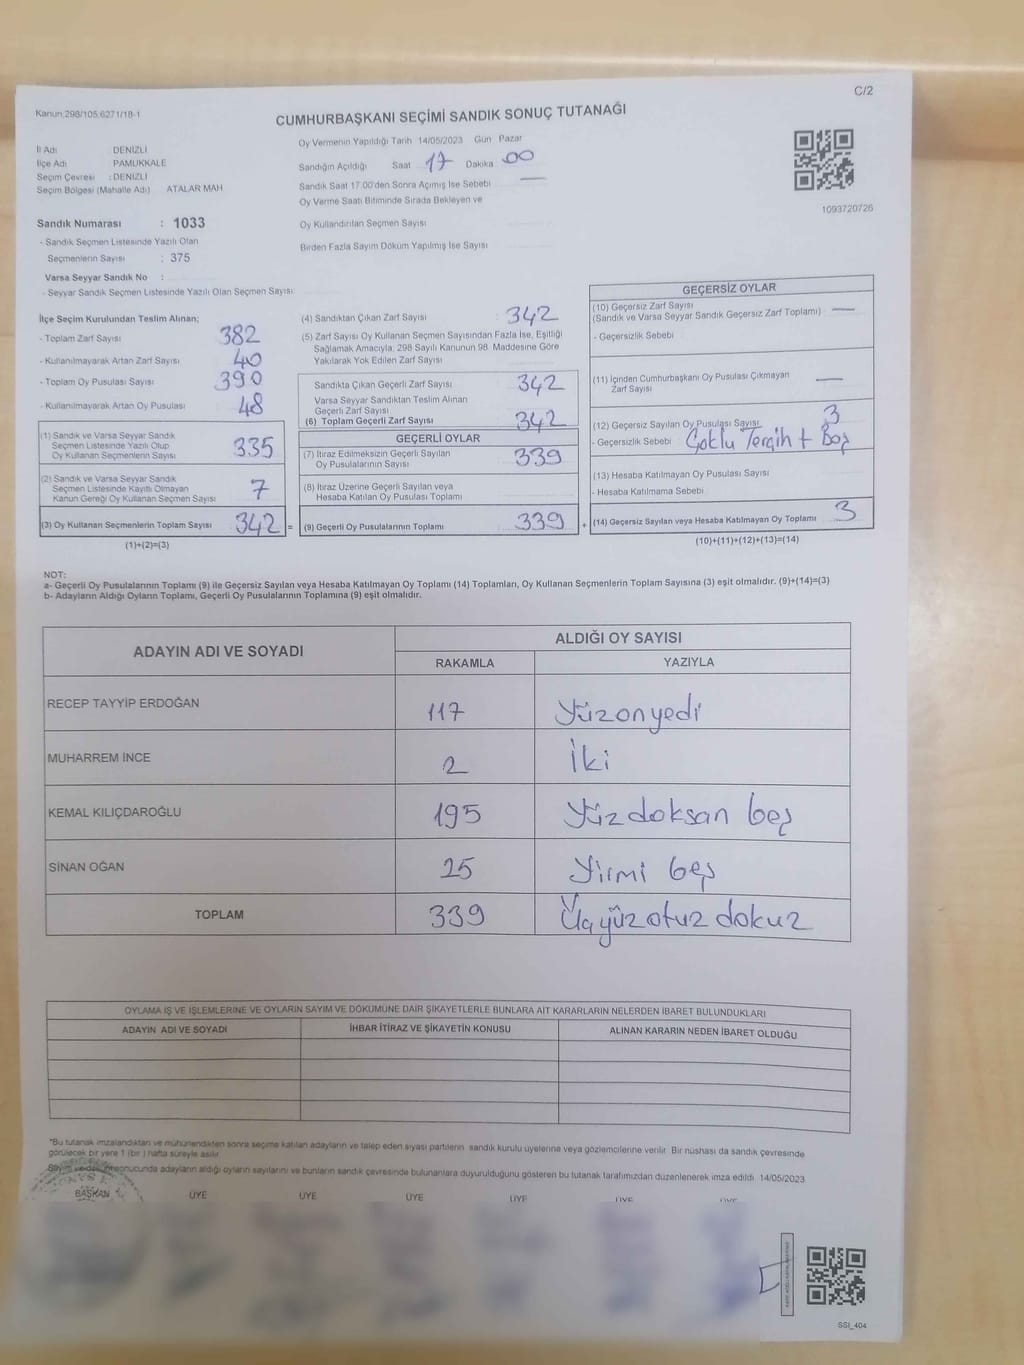 C/2
Kanun:298/105;6271/18-1
CUMHURBAŞKANI SEÇİMİ SANDIK SONUÇ TUTANAĞI
Oy Vermenin Yapıldığı Tarih 14/05/2023 Gün Pazar
İl Adı DENİZLİ
İlçe Adı PAMUKKALE
Seçim Çevresi : DENİZLİ
Seçim Bölgesi (Mahalle Adı) ATALAR MAH
Sandığın Açıldığı Saat 17 Dakika 00
Sandık Saat 17.00'den Sonra Açımış İse Sebebi —
Oy Verme Saati Bitiminde Sırada Bekleyen ve
Oy Kullandırılan Seçmen Sayısı
Birden Fazla Sayım Döküm Yapılmış İse Sayısı
1093720726
Sandık Numarası : 1033
- Sandık Seçmen Listesinde Yazılı Olan
Seçmenlerin Sayısı : 375
Varsa Seyyar Sandık No :
- Seyyar Sandık Seçmen Listesinde Yazılı Olan Seçmen Sayısı:
İlçe Seçim Kurulundan Teslim Alınan;
- Toplam Zarf Sayısı 382
- Kullanılmayarak Artan Zarf Sayısı 40
- Toplam Oy Pusulası Sayısı 390
- Kullanılmayarak Artan Oy Pusulası 48
(1) Sandık ve Varsa Seyyar Sandık
Seçmen Listesinde Yazılı Olup
Oy Kullanan Seçmenlerin Sayısı 335
(2) Sandık ve Varsa Seyyar Sandık
Seçmen Listesinde Kayıtlı Olmayan
Kanun Gereği Oy Kullanan Seçmen Sayısı 7
(3) Oy Kullanan Seçmenlerin Toplam Sayısı 342 =
(1)+(2)=(3)
(4) Sandıktan Çıkan Zarf Sayısı : 342
(5) Zarf Sayısı Oy Kullanan Seçmen Sayısından Fazla İse, Eşitliği
Sağlamak Amacıyla, 298 Sayılı Kanunun 98. Maddesine Göre
Yakılarak Yok Edilen Zarf Sayısı
Sandıkta Çıkan Geçerli Zarf Sayısı 342
Varsa Seyyar Sandıktan Teslim Alınan
Geçerli Zarf Sayısı
(6) Toplam Geçerli Zarf Sayısı 342
GEÇERLİ OYLAR
(7) İtiraz Edilmeksizin Geçerli Sayılan
Oy Pusulalarının Sayısı 339
(8) İtiraz Üzerine Geçerli Sayılan veya
Hesaba Katılan Oy Pusulası Toplamı
(9) Geçerli Oy Pusulalarının Toplamı 339 +
GEÇERSİZ OYLAR
(10) Geçersiz Zarf Sayısı
(Sandık ve Varsa Seyyar Sandık Geçersiz Zarf Toplamı) —
- Geçersizlik Sebebi
(11) İçinden Cumhurbaşkanı Oy Pusulası Çıkmayan
Zarf Sayısı —
(12) Geçersiz Sayılan Oy Pusulası Sayısı 3
- Geçersizlik Sebebi Çoklu Tercih + Boş
(13) Hesaba Katılmayan Oy Pusulası Sayısı
- Hesaba Katılmama Sebebi
(14) Geçersiz Sayılan veya Hesaba Katılmayan Oy Toplamı 3
(10)+(11)+(12)+(13)=(14)
NOT:
a- Geçerli Oy Pusulalarının Toplamı (9) ile Geçersiz Sayılan veya Hesaba Katılmayan Oy Toplamı (14) Toplamları, Oy Kullanan Seçmenlerin Toplam Sayısına (3) eşit olmalıdır. (9)+(14)=(3)
b- Adayların Aldığı Oyların Toplamı, Geçerli Oy Pusulalarının Toplamına (9) eşit olmalıdır.
ADAYIN ADI VE SOYADI ALDIĞI OY SAYISI
RAKAMLA YAZIYLA
RECEP TAYYİP ERDOĞAN 117 Yüzonyedi
MUHARREM İNCE 2 İki
KEMAL KILIÇDAROĞLU 195 Yüzdoksan beş
SİNAN OĞAN 25 Yirmi beş
TOPLAM 339 Üçyüzotuz dokuz
OYLAMA İŞ VE İŞLEMLERİNE VE OYLARIN SAYIM VE DÖKÜMÜNE DAİR ŞİKAYETLERLE BUNLARA AİT KARARLARIN NELERDEN İBARET BULUNDUKLARI
ADAYIN ADI VE SOYADI İHBAR İTİRAZ VE ŞİKAYETİN KONUSU ALINAN KARARIN NEDEN İBARET OLDUĞU
*Bu tutanak imzalandıktan ve mühürlendikten sonra seçime katılan adayların ve talep eden siyasi partilerin sandık kurulu üyelerine veya gözlemcilerine verilir. Bir nüshası da sandık çevresinde
görülecek bir yere 1 (bir) hafta süreyle asılır.
sonucunda adayların aldığı oyların sayılarını ve bunların sandık çevresinde bulunanlara duyurulduğunu gösteren bu tutanak tarafımızdan düzenlenerek imza edildi 14/05/2023
BAŞKAN ÜYE ÜYE ÜYE ÜYE ÜYE ÜYE
SSI_404